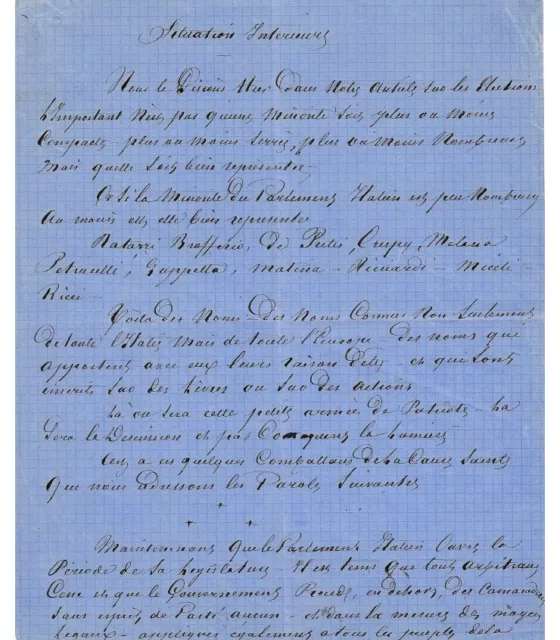 Situation Interieure
Nous le Disions Hier dans Notre Article sur les Elections
L'Important N'est pas qu'une Minorité soit plus ou moins
Compacte plus ou moins serrée, plus ou moins Nombreuse
Mais quelle soit bien représentée
Or Si la Minorité du Parlement Italien est peu Nombreuse
Au moins est elle bien représentée
Brofferio, de Crispy,
Petrucelli, Zuppetta, Matina Ricciardi Miceli
Ricci
Voila des Noms des Noms Connus Non Seulement
de toute l'Italie Mais de toute l'Europe des noms qui
apportent avec eux leurs raison Detre et qui sont
inscrits sur des Livres ou sur des actions
La ou sera cette petite armée de Patriote La
sera la Discussion et par Consequent la Lumiere
C'est a ces quelques Combattans de la Cause Sainte
Que nous adressons les Paroles Suivantes
Maintenant que le Parlement Italien Ouvre la
Période de Sa Legislature Il est tems que tout arbitraire
Cesse et que le Gouvernement Prende, en dehors, des Camaraderies
Sans esprit de Parti aucun et dans la mesure des moyens
Legaux applique également a tous les